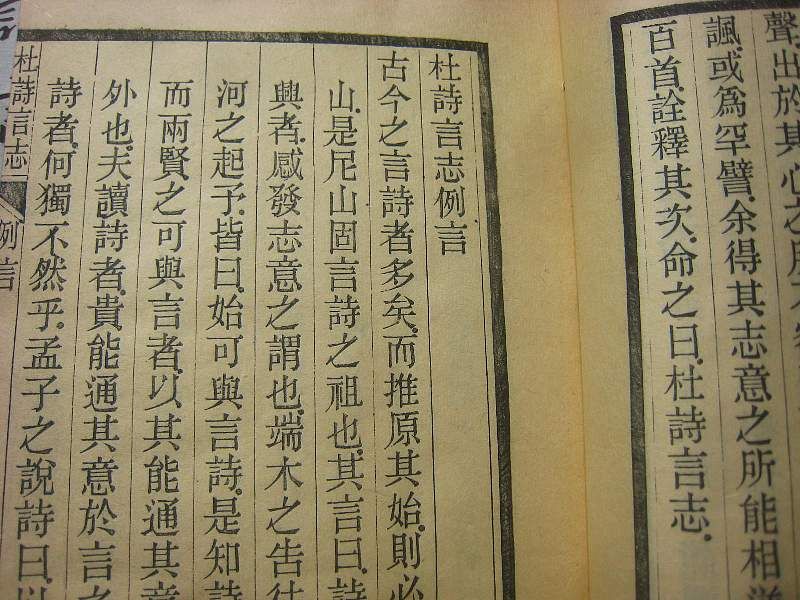 聲出於其心之所不
諷或爲罕譬.余得其志意之所能相
百首.詮釋其次.命之曰.杜詩言志.
杜詩言志例言
古今之言詩者多矣.而推原其始.則必
山.是尼山固言詩之祖也.其言曰.詩
興者.感發志意之謂也.端木之告往
河之起予.皆曰.始可與言詩.是知詩
而兩賢之可與言者.以其能通其意
外也.夫讀詩者.貴能通其意於言之
詩者.何獨不然乎.孟子之說詩曰.以
杜詩言志
例言